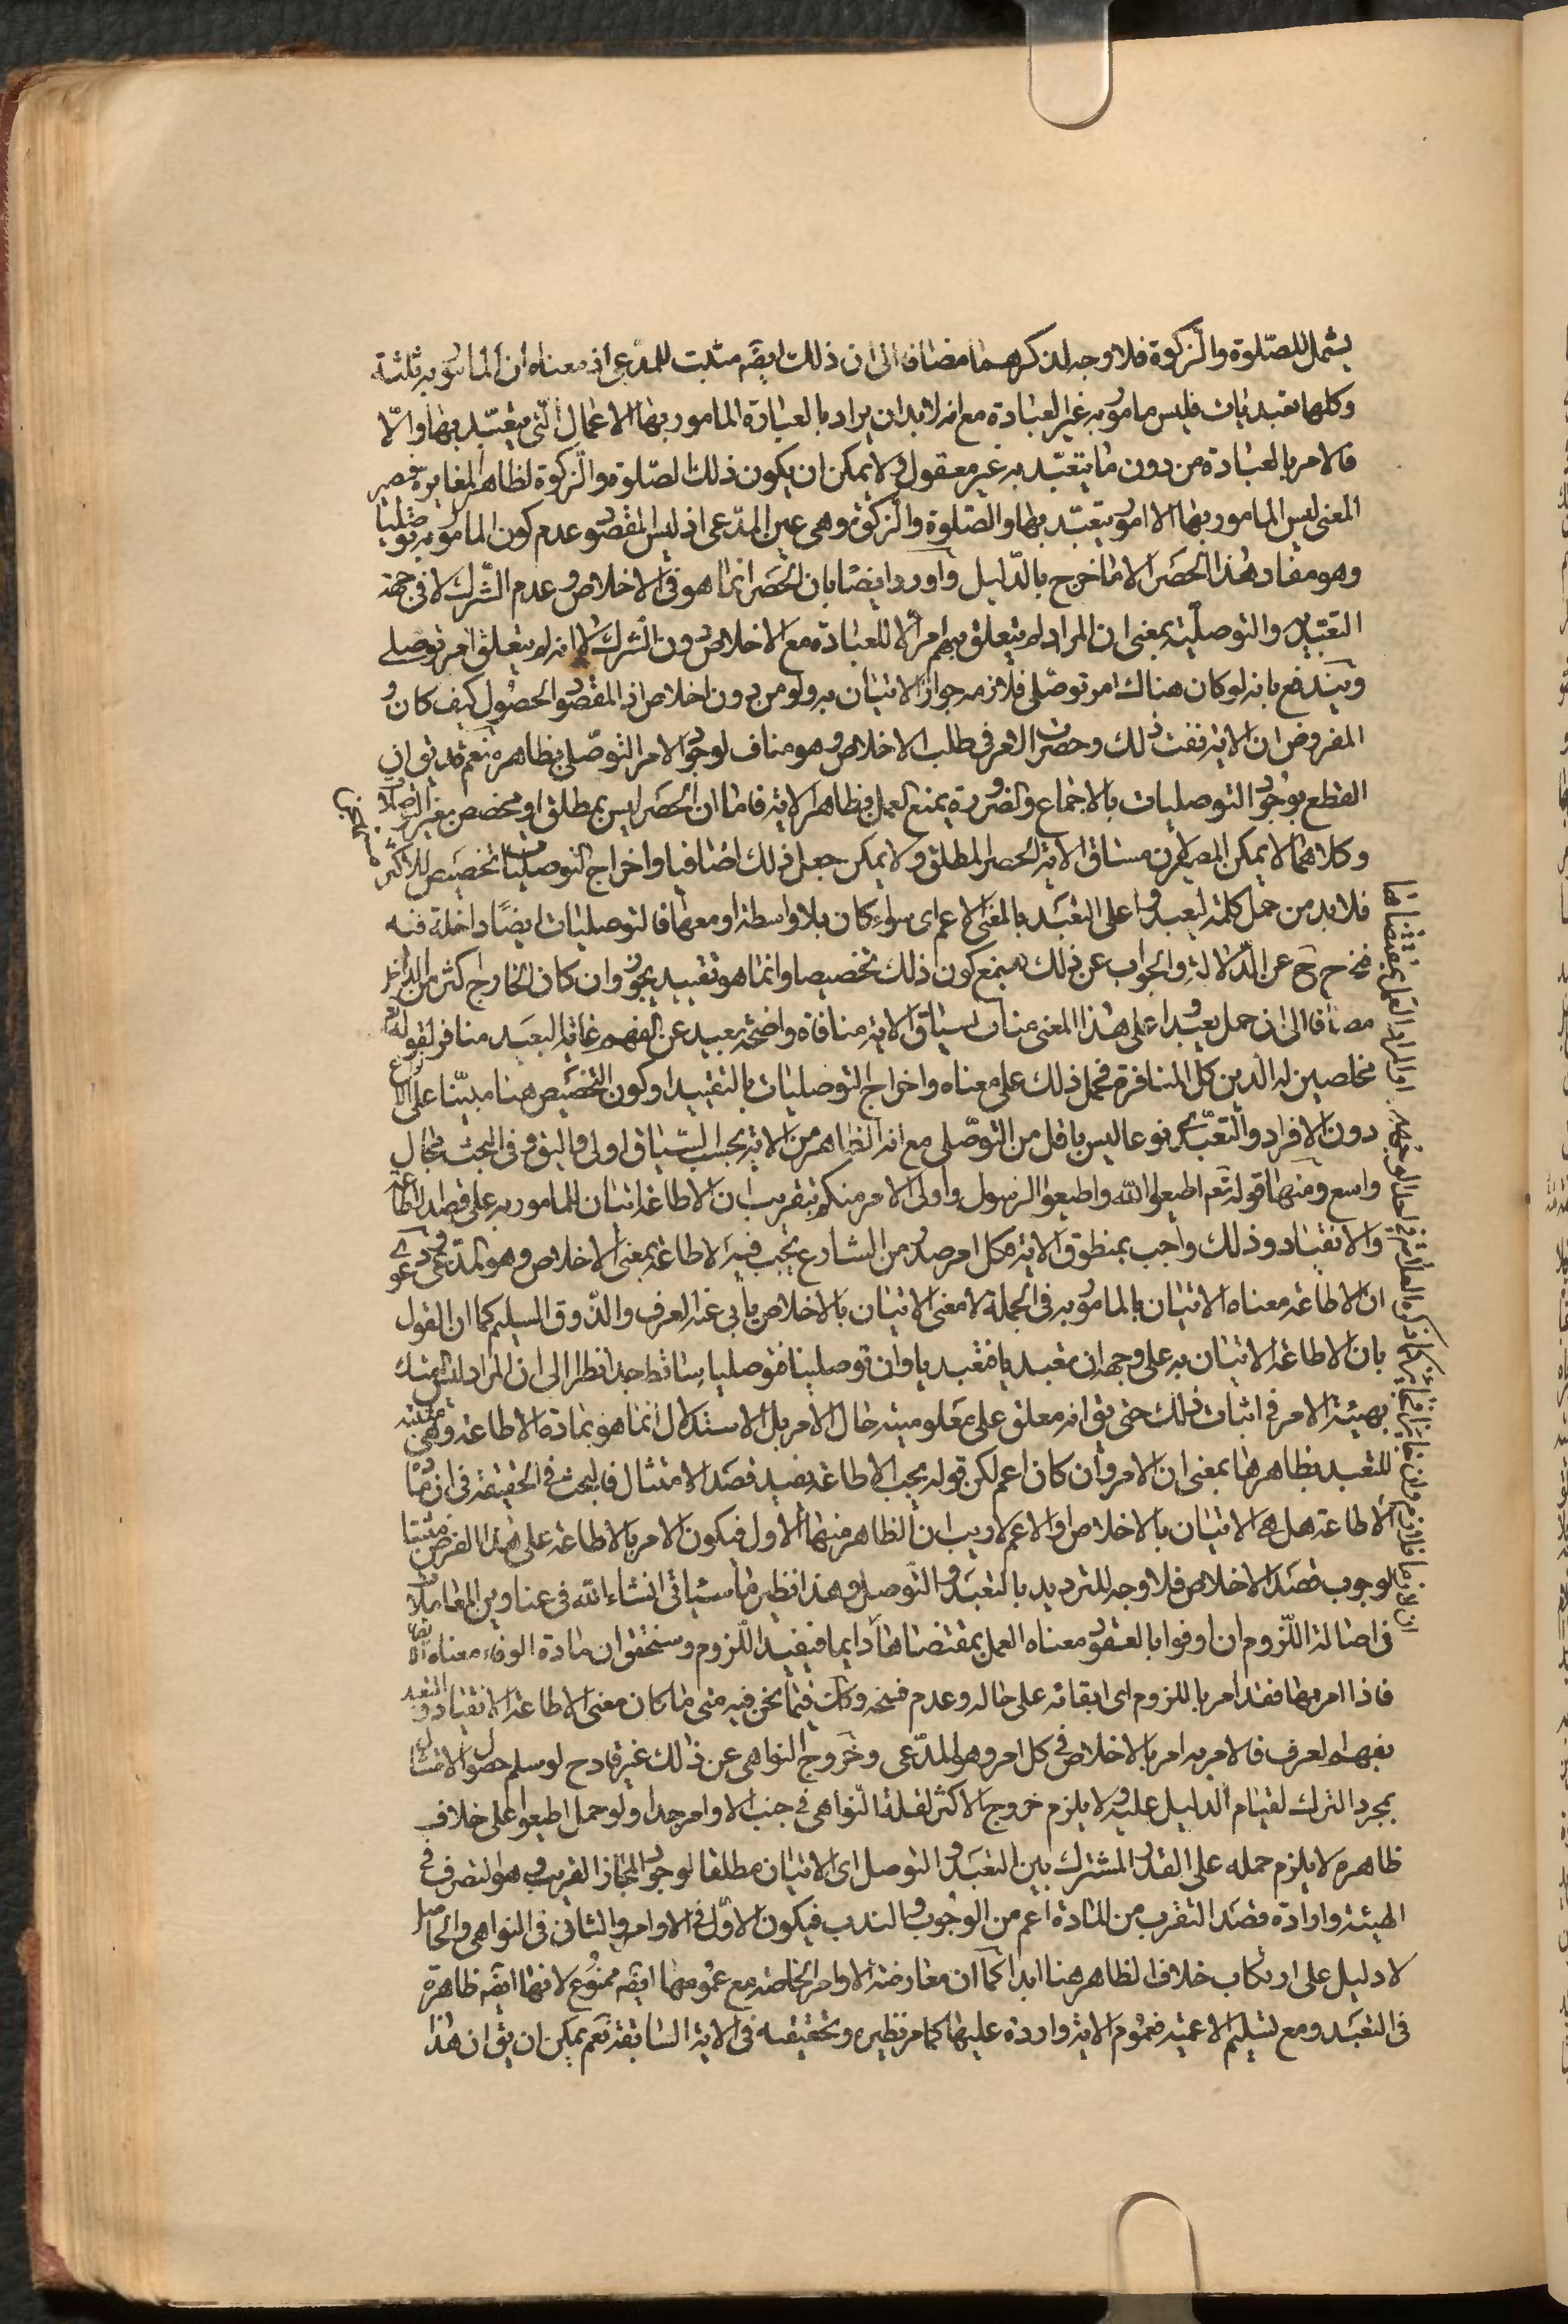 يشمل للصّلوة والزّكوة فلا وجه لذكرهما مضافا الى ان ذلك ايضَم مثبت للمدعى اذ معناه ان المأمور به ثلثة
وكلها تعبديات فليس مامور به غير العبادة مع انه لا بد ان يراد بالعبادة المامور بها الاعمال الّتى يتعبّد بها والّا
فالامر بالعبادة من دون ما يتعبّد به غير معقول ولا يمكن ان يكون ذلك الصّلوة والزّكوة لظاهر المغايرة فيصير
المعنى ليس المامور بها الا امور يتعبّد بها والصّلوة والزّكوة وهى عين المدّعى اذ ليس المقصود عدم كون المامور به توصّليا
وهو مفاد هذا الحصر الا ما خرج بالدّليل وآورد ايضا بان الحصر انما هو فى الاخلاص وعدم الشّرك لا فى جهة
التعبّدية والتوصليّة بمعنى ان المراد لم يتعلق بهم امر الا للعبادة مع الاخلاص دون الشرك لا انه لم يتعلق امر توصلى
ويندفع بانه لو كان هناك امر توصّلى فلازمه جواز الاتيان به ولو من دون اخلاص اذ المقصود الحصول كيف كان و
المفروض ان الاية نفت ذلك وحصرت الامر فى طلب الاخلاص وهو مناف لوجود الامر التوصّلى بظاهره نعم قد يق ان
القطع بوجود التوصليات بالاجماع والضرورة يمنع العمل بظاهر الاية فاما ان الحصر ليس بمطلق او مخصص بغير التوصليات
وكلاهما لا يمكن المصير اليه لان مساق الاية الحصر المطلق ولا يمكن جعل ذلك اضافيا واخراج التوصليات تخصيص للاكثر
فلا بد من حمل كلمة ليعبدوا على التعبّد بالمعنى الاعم اى سواء كان بلا واسطة او معها فالتوصليات ايضا داخلة فيه
فيخرج ح عن الدّلالة والجواب عن ذلك بمنع كون ذلك تخصيصا وانما هو تقييد يجوز وان كان الخارج اكثر من الداخل
مضافا الى ان حمل يعبدوا على هذا المعنى مناف لسياق الاية منافاة واضحة بعيد عن الفهم غاية البعد منافر لقوله تع
مخلصين له الدّين كل المنافرة فحمل ذلك على معناه واخراج التوصليات بالتقييد او كون التخصيص هنا مبيّنا على الانواع
دون الافراد والتعبّدى نوعا ليس باقل من التوصّلى مع انه الظاهر من الاية بحسب السّياق اولى واليق وفى البحث مجال
واسع ومنها قوله تعم اطيعوا الله واطيعوا الرسول واولى الامر منكم بتقريب ان الاطاعة اتيان المامور به على قصد الطاعة
والانقياد وذلك واجب بمنطوق الاية فكل امر صدر من الشارع يجب فيه الاطاعة بمعنى الاخلاص وهو المدّعى ودعوى
ان الاطاعة معناه الاتيان بالمامور به فى الجملة لا معنى الاتيان بالاخلاص يأبى عنه العرف والذّوق السليم كما ان القول
بان الاطاعة الاتيان به على وجهه ان تعبديا فتعبديا وان توصليا فتوصليا ساقط جدا نظرا الى ان المراد ليس التمسك
بهيئة الامر فى اثبات ذلك حتى يق انه معلق على معلومية حال الامر بل الاستدلال انما هو بمادة الاطاعة وهى مثبتة
للتعبد بظاهرها بمعنى ان الامر وان كان اعم لكن قوله يجب الاطاعة يفيد قصد الامتثال فالبحث فى الحقيقة فى ان مادّة
الاطاعة هل هى الاتيان بالاخلاص او الاعم لا ريب ان الظاهر منهما الاول فيكون الامر بالاطاعة على هذا الفرض مثبتا
لوجوب قصد الاخلاص فلا وجه للترديد بالتعبد والتوصل وهذا نظير ما سياتى انشاء الله فى عناوين المعاملات
فى اصالة اللّزوم ان اوفوا بالعقود معناه العمل بمقتضاها دايما فيفيد اللّزوم وسنحقق ان مادة الوفاء معناه الابقاء
فاذا امر بها فقد امر باللزوم اى ابقائه على حاله وعدم فسخه وكك فيما نحن فيه متى ما كان معنى الاطاعة الانقياد والتعبد
بفهم العرف فالامر به امر بالاخلاص فى كل امر وهو المدّعى وخروج النواهى عن ذلك غير قادح لو سلم حصول الامتثال
بمجرد الترك لقيام الدليل عليه ولا يلزم خروج الاكثر لقلة النّواهى فى جنب الاوامر جدا ولو حمل اطيعوا على خلاف
ظاهره لا يلزم حمله على القدر المشترك بين التعبد والتوصل اى الاتيان مطلقا لوجود المجاز القريب وهو التصرف فى
الهيئة وارادة قصد التقرب من المادة اعم من الوجوب والندب فيكون الاوّل فى الاوامر والثانى فى النواهى والحاصل
لا دليل على ارتكاب خلاف الظاهر هنا ابدا كما ان معارضة الاوامر الخاصة مع عمومها ايضَم ممنوع لانها ايضَم ظاهرة
فى التعبد ومع تسليم الاعمية فعموم الاية واردة عليها كما مر نظيره وتحقيقه فى الاية السّابقة نعم يمكن ان يق ان هذا